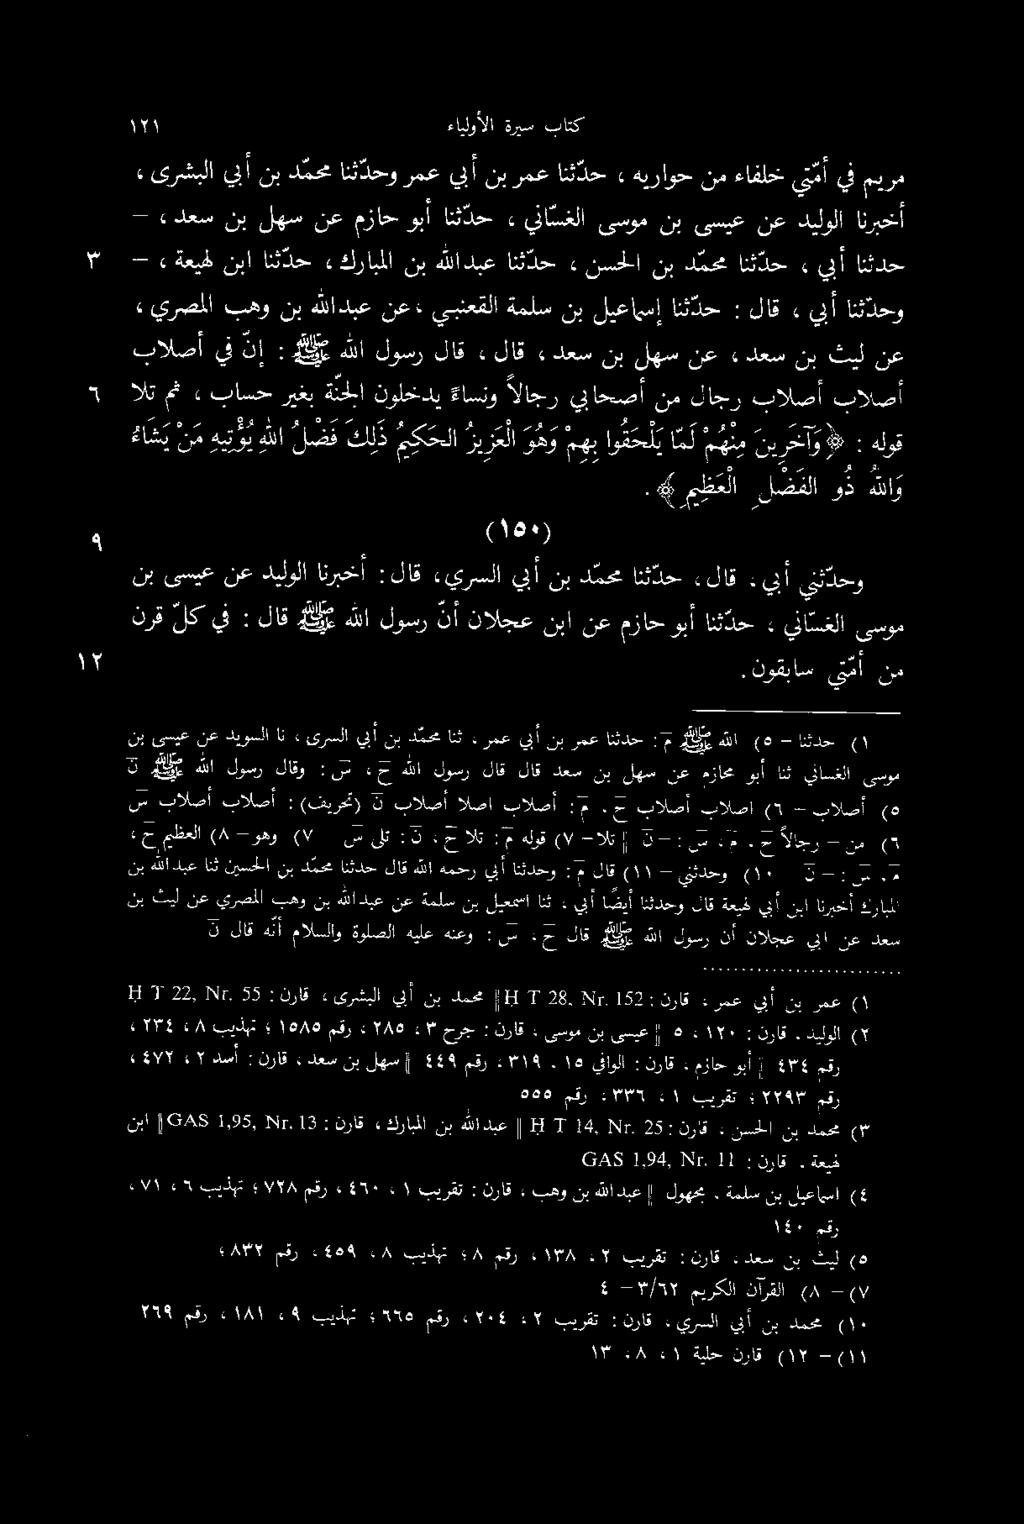 كتاب سيرة الأولياء ١٢١
مريم في أمّتي خلفاء من حواريه ، حدّثنا عمر بن أبي عمر وحدّثنا محمّد بن أبي البشرى ،
أخبرنا الوليد عن عيسى بن موسى الغسّاني ، حدّثنا أبو حازم عن سهل بن سعد ، –
حدثنا أبي ، حدّثنا محمّد بن الحسن ، حدّثنا عبدالله بن المبارك ، حدّثنا ابن لهيعة ، – ٣
وحدّثنا أبي ، قال : حدّثنا إسماعيل بن سلمة القعنبي ، عن عبدالله بن وهب المصري ،
عن ليث بن سعد ، عن سهل بن سعد ، قال ، قال رسول الله ﷺ : إنّ في أصلاب
أصلاب أصلاب رجال من أصحابي رجالاً ونساءً يدخلون الجنّة بغير حساب ، ثم تلا ٦
قوله : ﴿وَآخَرِينَ مِنْهُمْ لَمَّا يَلْحَقُوا بِهِمْ وَهُوَ الْعَزِيزُ الحَكِيمُ ذَلِكَ فَضْلُ اللهِ يُؤْتِيهِ مَنْ يَشَاءُ
وَاللهُ ذُو الفَضْلِ الْعَظِيمِ﴾ .
(١٥٠) ٩
وحدّثني أبي ، قال ، حدّثنا محمّد بن أبي السري ، قال : أخبرنا الوليد عن عيسى بن
موسى الغسّاني ، حدّثنا أبو حازم عن ابن عجلان أنّ رسول الله ﷺ قال : في كلّ قرن
من أمّتي سابقون . ١٢
١) حدثنا – ٥) الله ﷺ م : حدثنا عمر بن أبي عمر ، ثنا محمّد بن أبي السرى ، انا السويد عن عيسى بن
موسى الغساني ثنا أبو محازم عن سهل بن سعد قال قال رسول الله ح ، س : وقال رسول الله ﷺ ن
٥) أصلاب – ٦) اصلاب أصلاب ح . م : أصلاب اصلا أصلاب ن (تحريف) : أصلاب أصلاب س
٦) من – رجالاً ح . م ، س : – ن ‖ تلا – ٧) قوله م : تلا ح ، ن : تلى س ٧) وهو – ٨) العظيم ح ،
م . س : – ن ١٠) وحدثني – ١١) قال م : وحدثنا أبي رحمه الله قال حدثنا محمّد بن الحسين ثنا عبدالله بن
المبارك أخبرنا ابن أبي لهيعة قال وحدثنا أيضًا أبي ، ثنا اسمعيل بن سلمة عن عبدالله بن وهب المصري عن ليث بن
سعد عن ابي عجلان أن رسول الله ﷺ قال ح ، س : وعنه عليه الصلوة والسلام أنّه قال ن
١) عمر بن أبي عمر ، قارن : H T 28, Nr. 152 ‖ محمد بن أبي البشرى ، قارن : Ḥ T 22, Nr. 55
٢) الوليد . قارن : ١٢٠ ، ٥ ‖ عيسى بن موسى ، قارن : جرح ٣ ، ٢٨٥ ، رقم ١٥٨٥ ؛ تهذيب ٨ ، ٢٣٤ ،
رقم ٤٣٤ ‖ أبو حازم ، قارن : الوافي ١٥ . ٣١٩ ، رقم ٤٤٩ ‖ سهل بن سعد ، قارن : أسد ٢ ، ٤٧٢ ،
رقم ٢٢٩٣ ؛ تقريب ١ ، ٣٣٦ ، رقم ٥٥٥
٣) محمد بن الحسن ، قارن : Ḥ T 14, Nr. 25 ‖ عبدالله بن المبارك ، قارن : GAS 1,95, Nr. 13 ‖ ابن
لهيعة . قارن : GAS 1,94, Nr. 11
٤) اسماعيل بن سلمة . مجهول ‖ عبدالله بن وهب ، قارن : تقريب ١ ، ٤٦٠ ، رقم ٧٢٨ ؛ تهذيب ٦ ، ٧١ ،
رقم ١٤٠
٥) ليث بن سعد . قارن : تقريب ٢ ، ١٣٨ ، رقم ٨ ؛ تهذيب ٨ ، ٤٥٩ ، رقم ٨٣٢ ؛
٧) – ٨) القرآن الكريم ٦٢/٣ – ٤
١٠) محمد بن أبي السري ، قارن : تقريب ٢ ، ٢٠٤ ، رقم ٦٦٥ ؛ تهذيب ٩ ، ١٨١ ، رقم ٢٦٩
١١) – ١٢) قارن حلية ١ ، ٨ ، ١٣